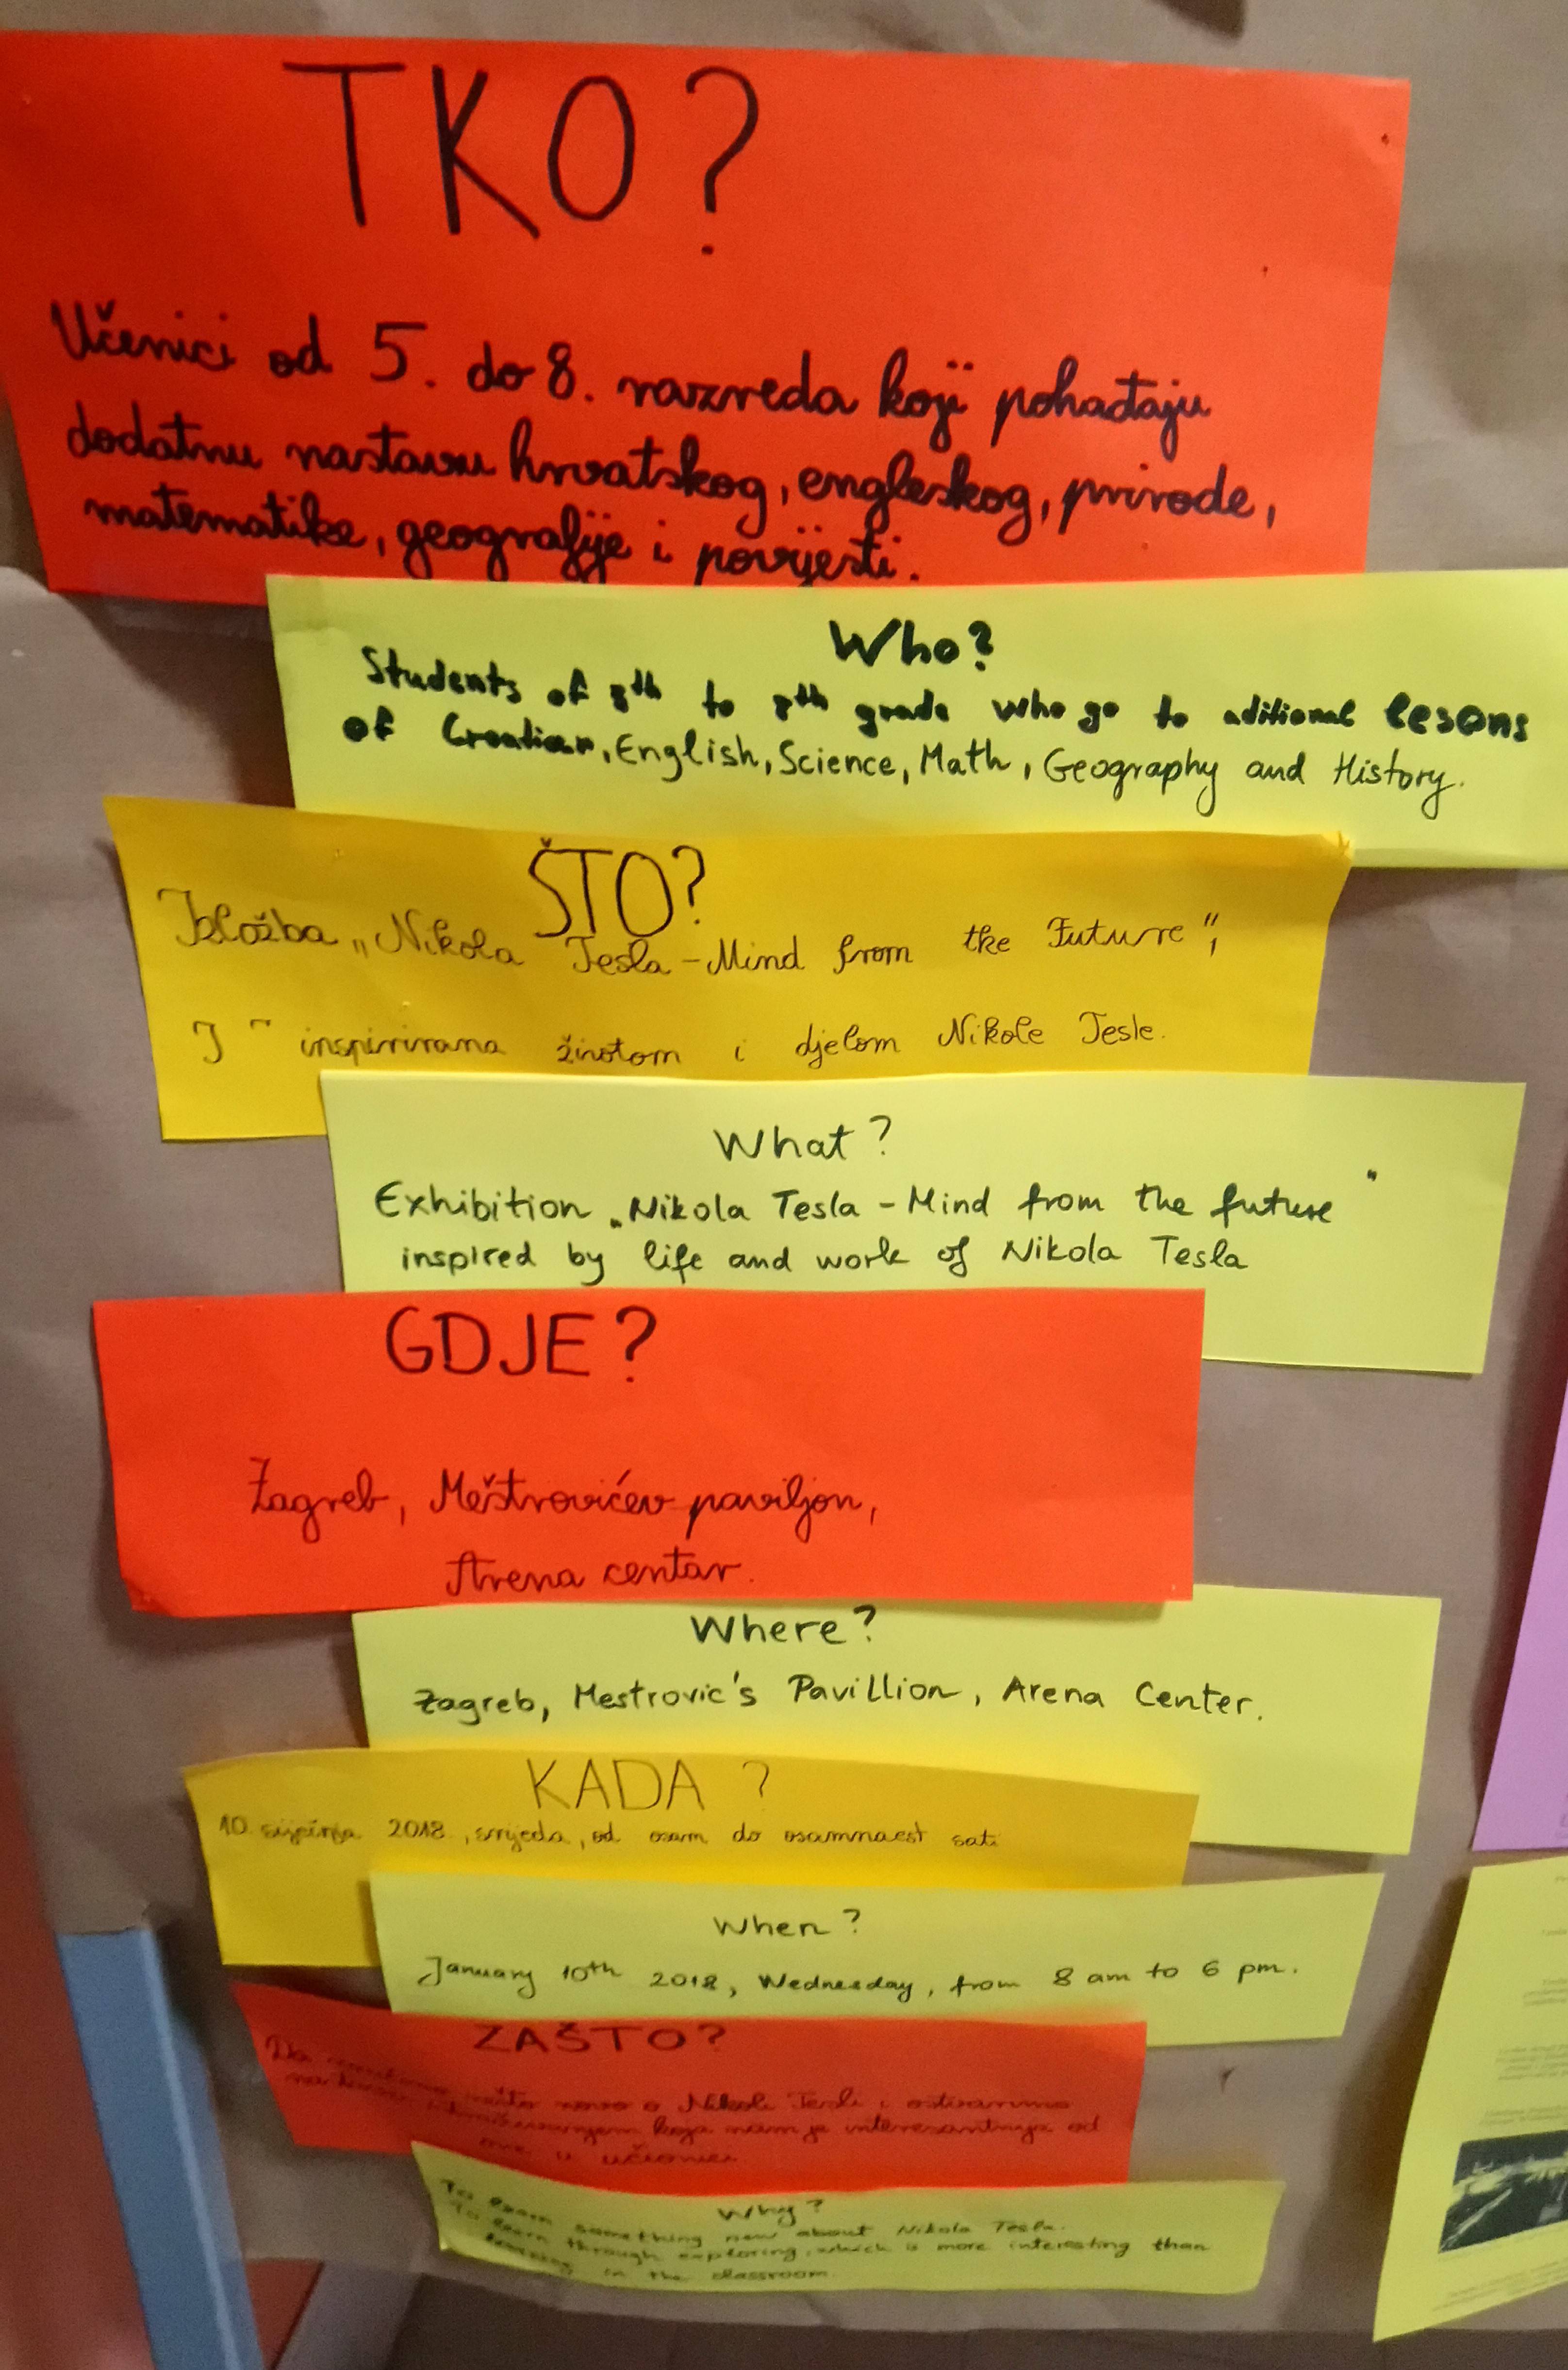 TKO?
Učenici od 5. do 8. razreda koji pohađaju
dodatnu nastavu hrvatskog, engleskog, prirode,
matematike, geografije i povijesti.
Who?
Students of 5th to 8th grade who go to aditional lesons
of Croatian, English, Science, Math, Geography and History.
ŠTO?
Izložba „Nikola Tesla - Mind from the Future",
inspirirana životom i djelom Nikole Tesle.
What?
Exhibition „Nikola Tesla - Mind from the future"
inspired by life and work of Nikola Tesla
GDJE?
Zagreb, Meštrovićev paviljon,
Arena centar.
Where?
Zagreb, Mestrovic's Pavillion, Arena Center.
KADA?
10. siječnja 2018., srijeda, od osam do osamnaest sati
When?
January 10th 2018, Wednesday, from 8 am to 6 pm.
ZAŠTO?
Da nešto novo o Nikoli Tesli i ostvarimo
koja nam je interesantnija od
one u učionici
Why?
To learn something new about Nikola Tesla.
To learn through exploring, which is more interesting than
learning in the classroom.